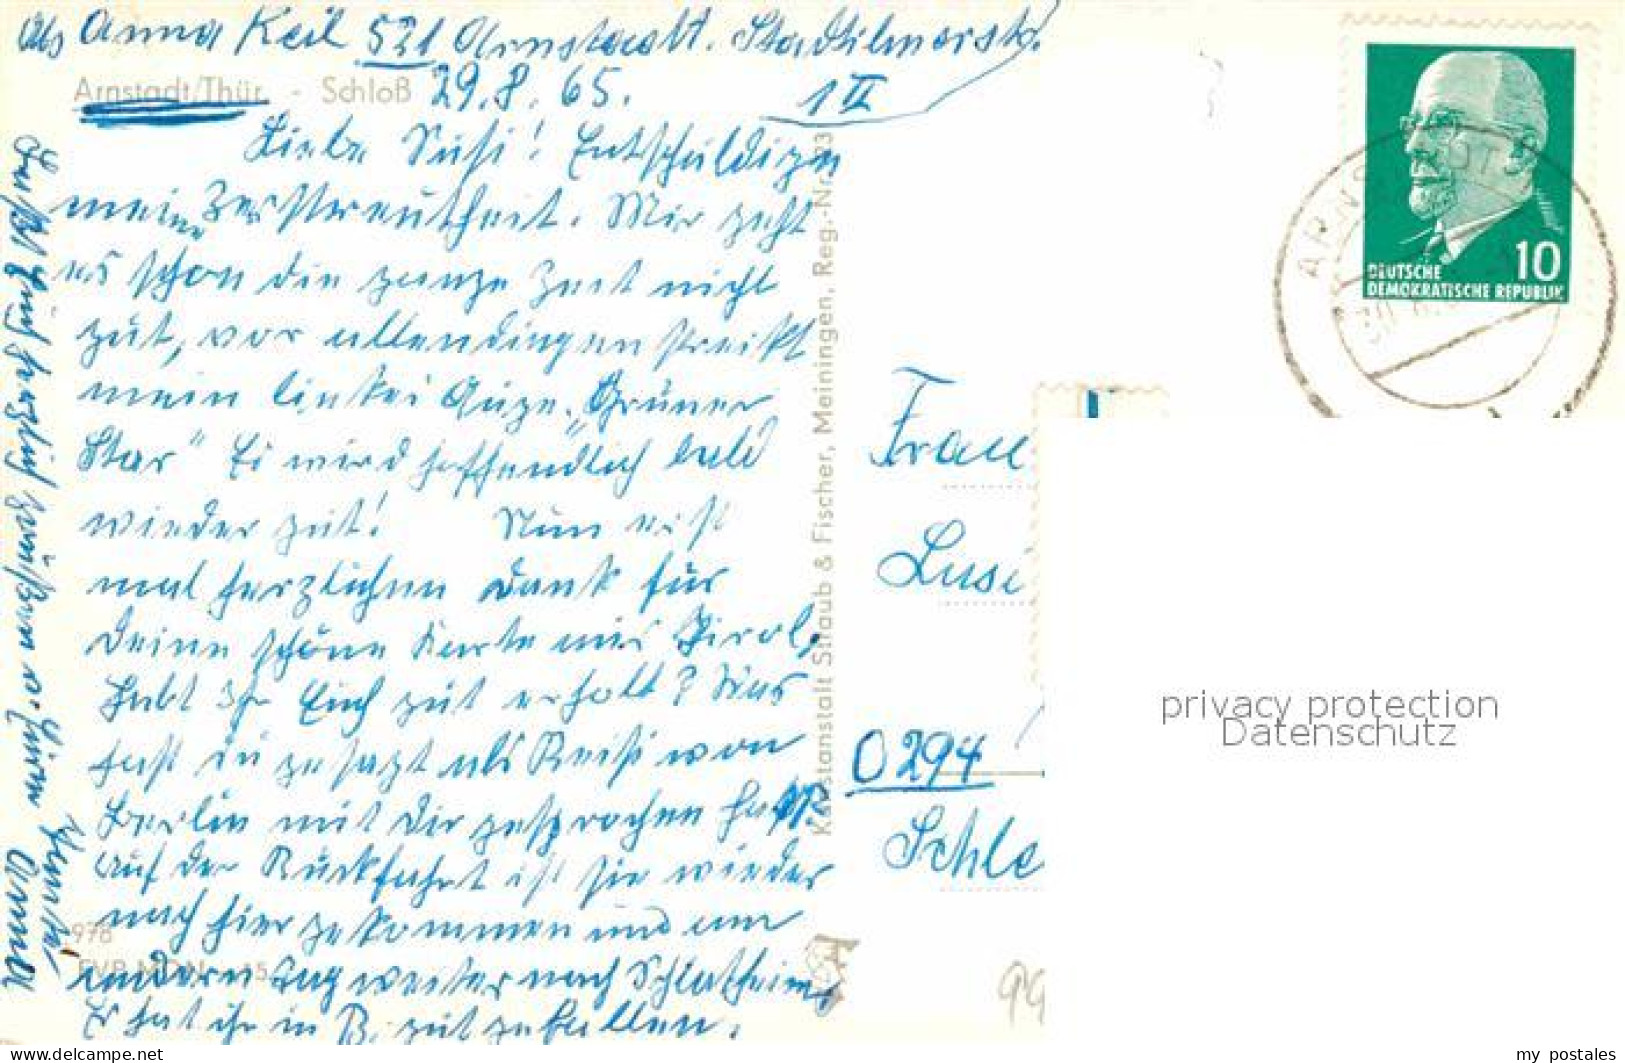 Abs Anna Keil 521 Arnstadt. Stadtilmerstr.
1 II
Arnstadt/Thür. - Schloß 29.8.65.
Liebe Susi! Entschuldige
meine Zerstreutheit. Mir geht
es schon die ganze Zeit nicht
gut, vor allendingen streikt
mein linkes Auge. „Grüner
Star" Es wird hoffendlich bald
wieder gut! Nun erst
mal herzlichen Dank für
Deine schöne Karte aus Tirol.
Habt Ihr Euch gut erholt? Was
hast du gesagt als von
Berlin mit dir gesprochen hat?
Auf der Rückfahrt ist sie wieder
nach hier gekommen und am
andern Tag weiter nach Schlotheim.
Es hat ihr in B. gut gefallen.
Sei herzlich gegrüßt von
Anna
978
Kunstanstalt Straub & Fischer, Meiningen, Reg.-Nr. 23
DEUTSCHE
DEMOKRATISCHE REPUBLIK
10
ARNSTADT
Frau
Lusi
O 294
Schle
99
privacy protection
Datenschutz
www.delcampe.net
my_postales